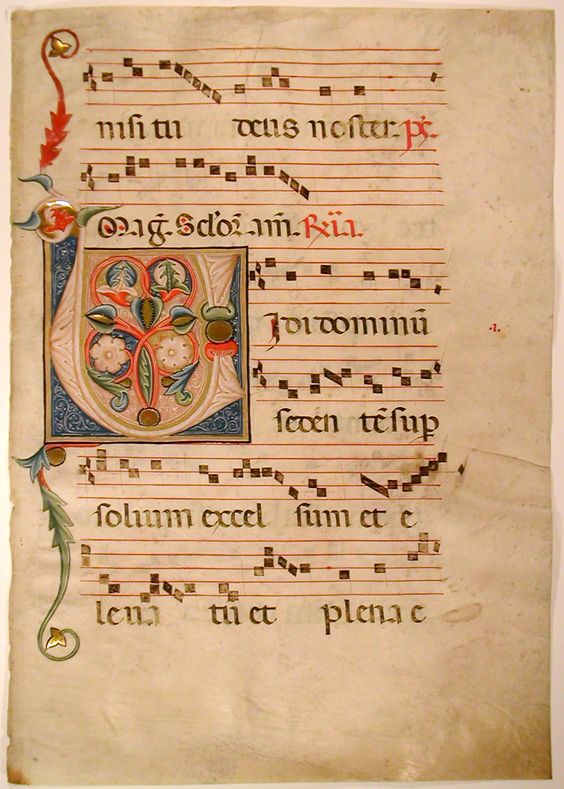 nisi tu deus noster. ps̃.
Mag̃. Sclor̃. am̃. Rña.
Vidi dominũ
.1.
seden tẽ sup
solium excel sum et e
leua tũ et plena e